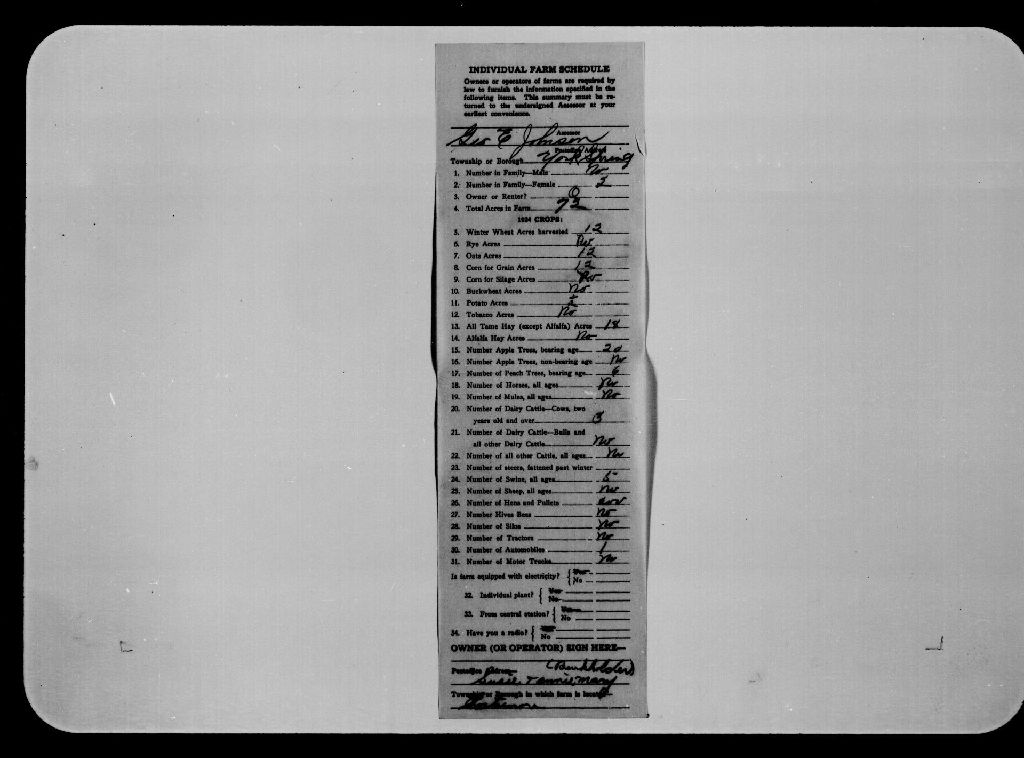 INDIVIDUAL FARM SCHEDULE
Owners or operators of farms are required by
law to furnish the information specified in the
following items. This summary must be re-
turned to the undersigned Assessor at your
earliest convenience.
Geo E Johnson
Assessor
Postoffice Address
Township or Borough York Spring
1. Number in Family—Male No
2. Number in Family—Female
3. Owner or Renter? O
4. Total Acres in Farm 72
1924 CROPS:
5. Winter Wheat Acres harvested 12
6. Rye Acres No
7. Oats Acres 12
8. Corn for Grain Acres 12
9. Corn for Silage Acres No
10. Buckwheat Acres No
11. Potato Acres
12. Tobacco Acres No
13. All Tame Hay (except Alfalfa) Acres 18
14. Alfalfa Hay Acres No
15. Number Apple Trees, bearing age 20
16. Number Apple Trees, non-bearing age No
17. Number of Peach Trees, bearing age 6
18. Number of Horses, all ages No
19. Number of Mules, all ages No
20. Number of Dairy Cattle—Cows, two
years old and over 3
21. Number of Dairy Cattle—Bulls and
all other Dairy Cattle No
22. Number of all other Cattle, all ages No
23. Number of steers, fattened past winter
24. Number of Swine, all ages 5
25. Number of Sheep, all ages No
26. Number of Hens and Pullets 200
27. Number Hives Bees No
28. Number of Silos No
29. Number of Tractors No
30. Number of Automobiles 1
31. Number of Motor Trucks No
Is farm equipped with electricity? { Yes
No
32. Individual plant? { Yes
No
33. From central station? { Yes
No
34. Have you a radio? { Yes
No
OWNER (OR OPERATOR) SIGN HERE—
Postoffice Address
Susie, Fannie, Mary
Township or Borough in which farm is located